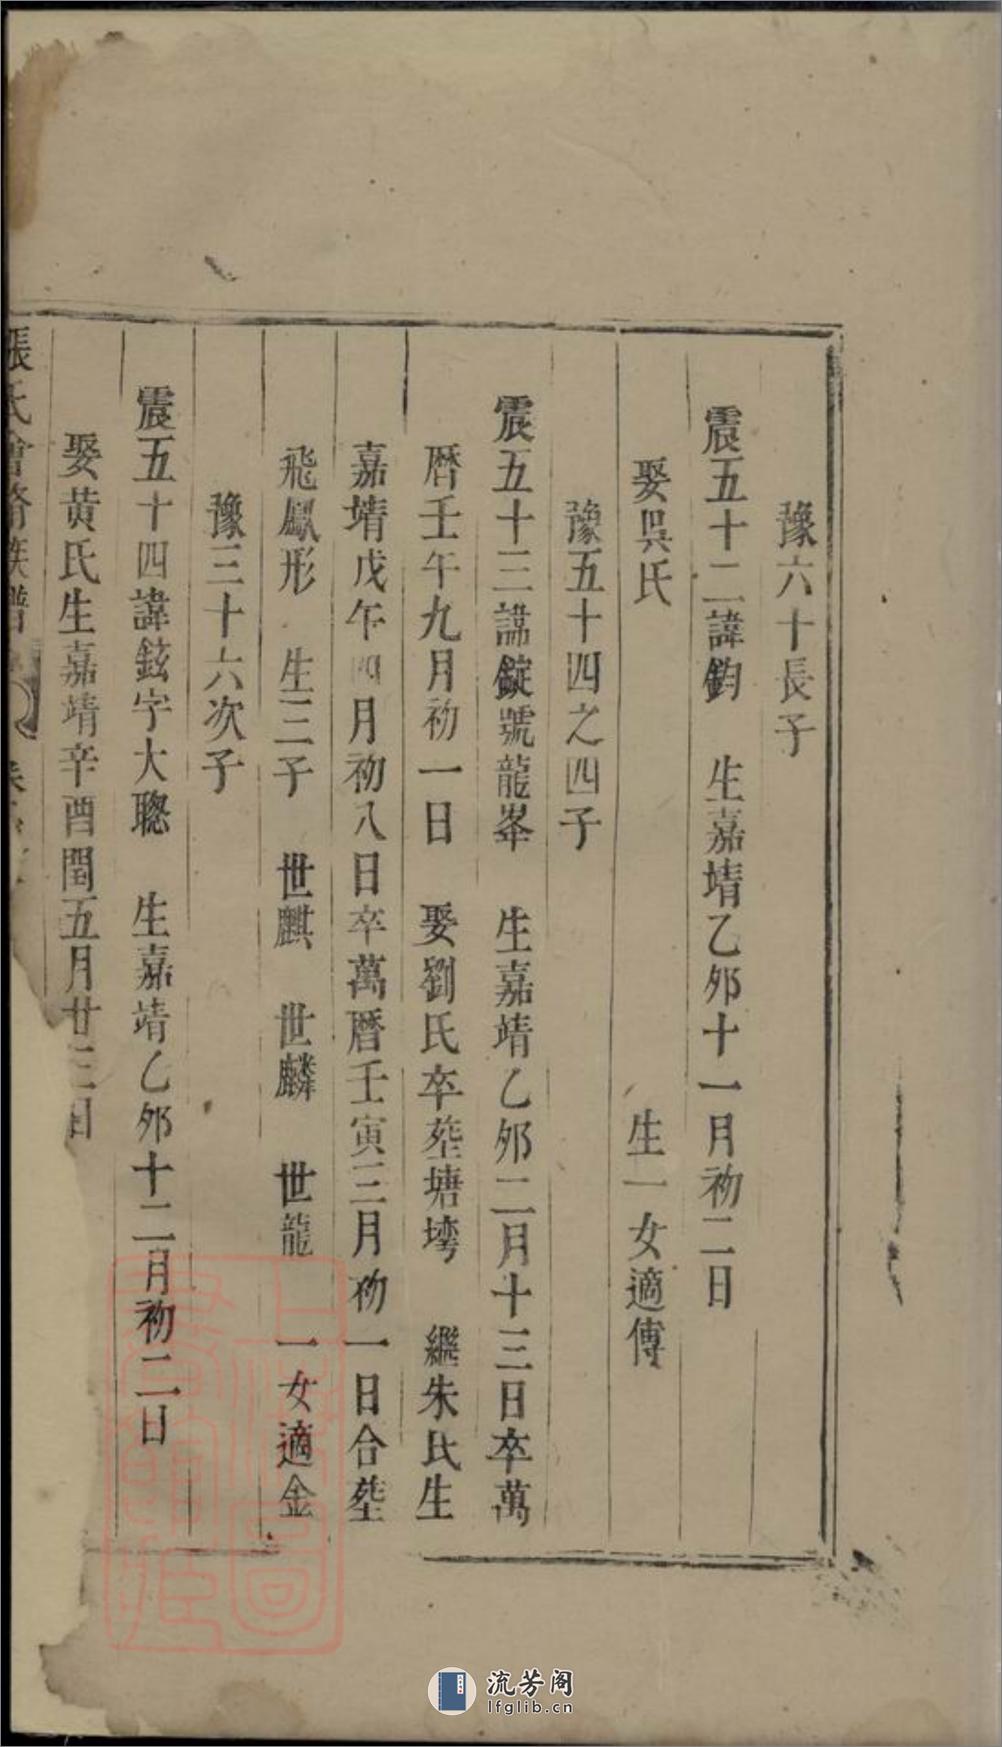 豫六十長子
震五十二諱鈞　生嘉靖乙夘十一月初二日
娶吳氏　生一女適傅
豫五十四之四子
震五十三諱錠號龍峯　生嘉靖乙夘二月十三日卒萬
曆壬午九月初一日　娶劉氏卒塟塘塆　繼朱氏生
嘉靖戊午四月初八日卒萬曆壬寅三月初一日合塟
飛鳳形　生三子　世麒　世麟　世龍　一女適金
豫三十六次子
震五十四諱鉉字大聰　生嘉靖乙夘十二月初二日
娶黃氏生嘉靖辛酉閏五月廿三日
張氏會脩族譜　卷
上海圖書館藏
流芳阁
lfglib.cn